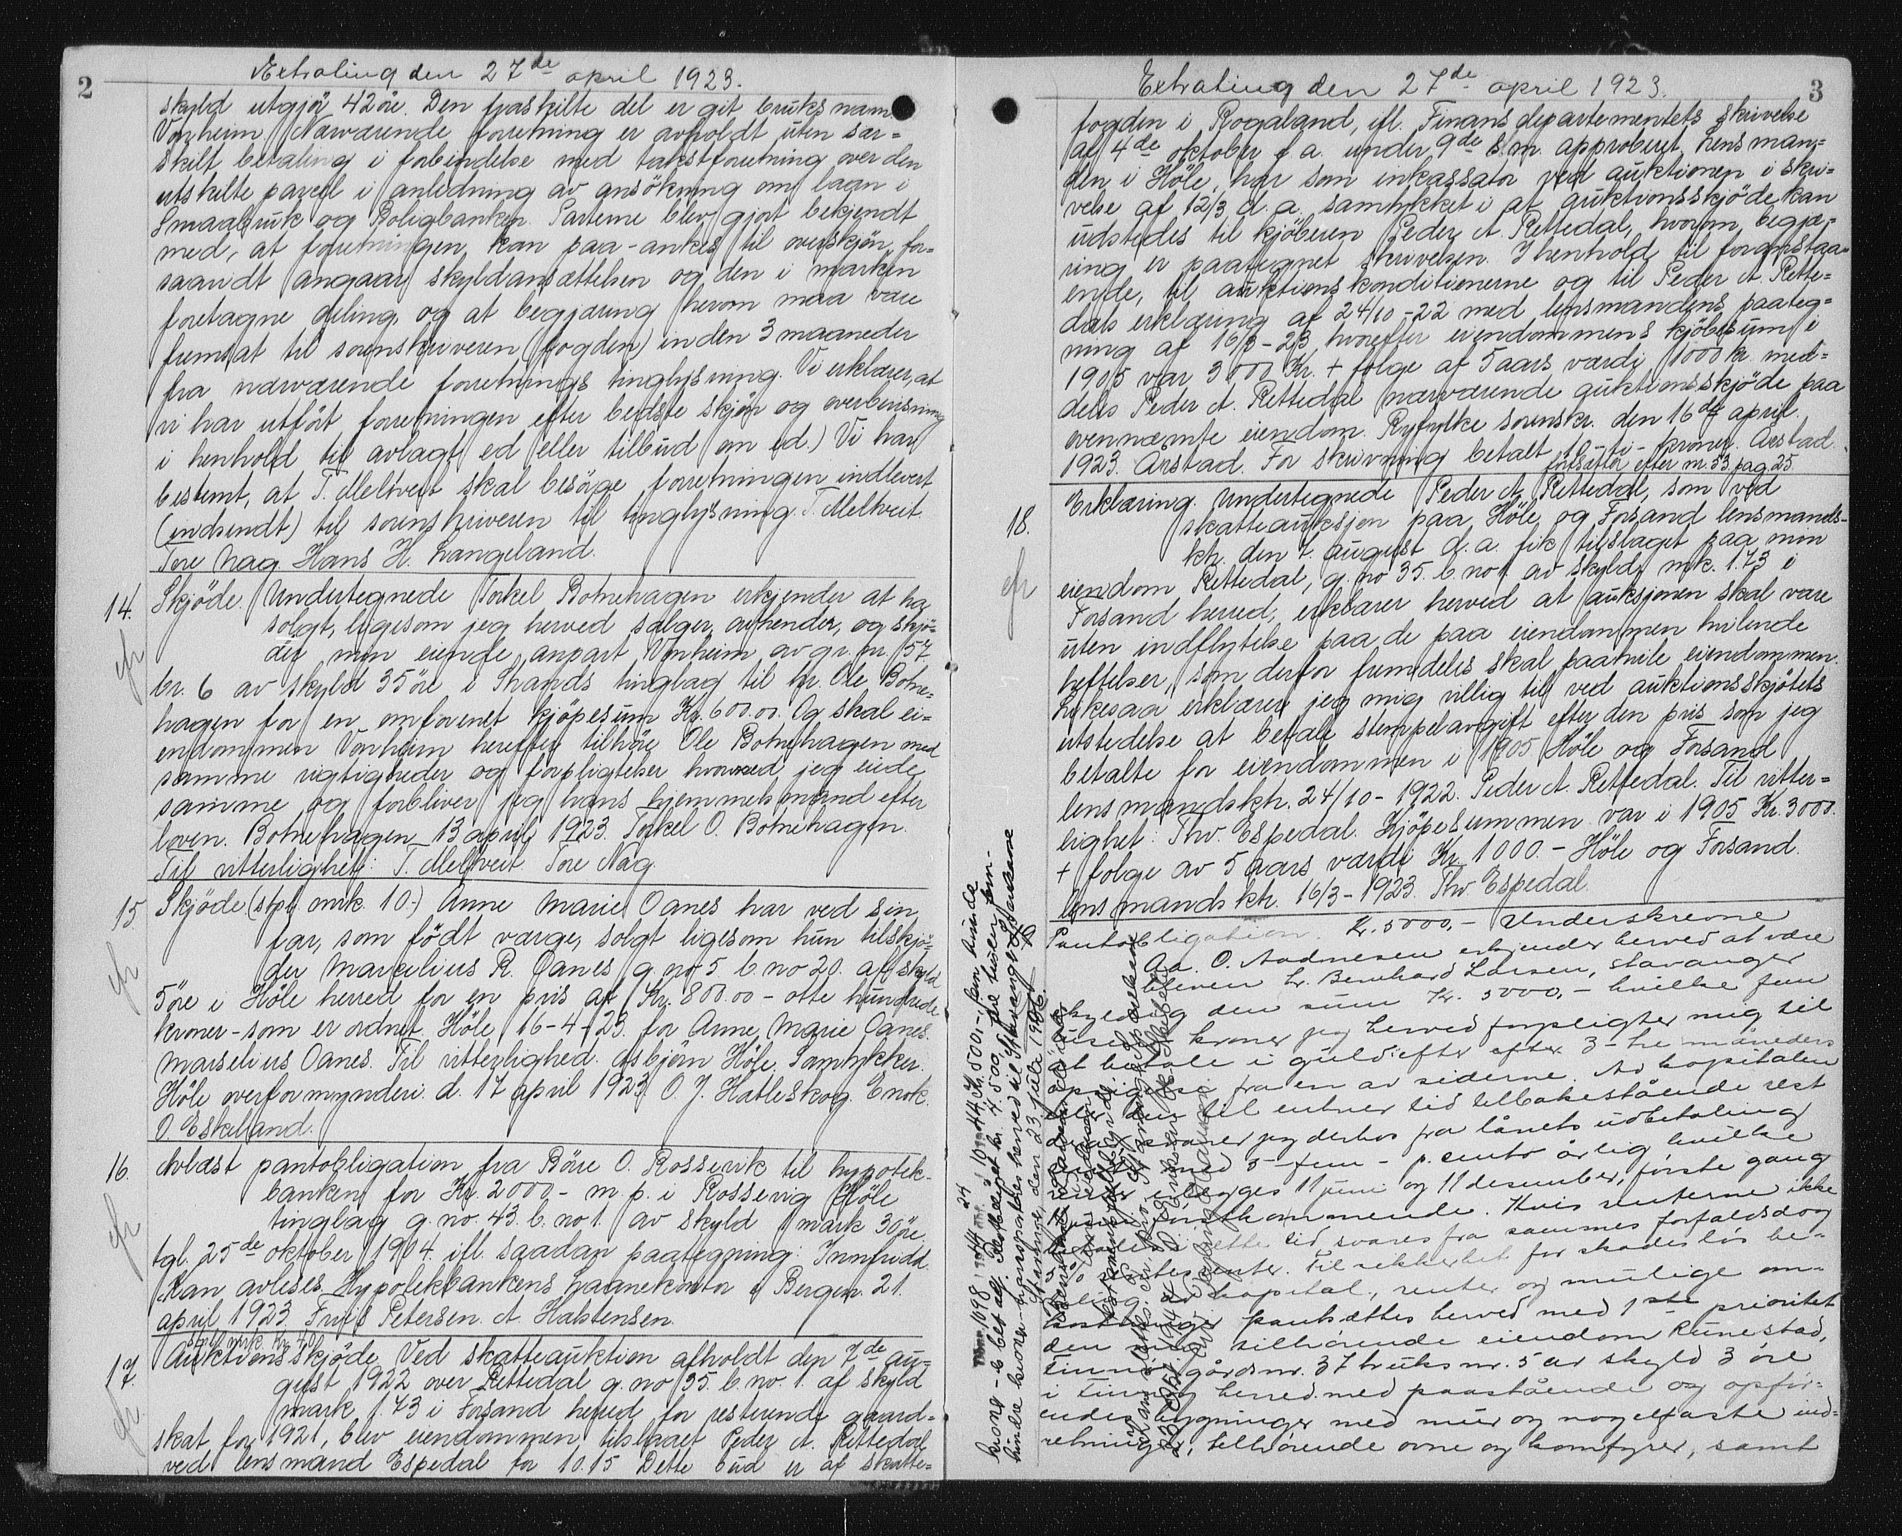 2
Extraling den 27de april 1923.
skyld utgjör 42 öre. Den fraskilte del er git bruksnam
Vonheim. (Nærværende forretning er avholdt uten sær=
skilt betaling i forbindelse med takstforretning over den
utskilte parcel i anledning av ansökning om laan i
Smaabruk og Boligbanken. Parterne blev gjort bekjendt
med, at forretningen kan paa-ankes til overskjön, for-
saavidt angaar skyldansættelsen og den i marken
foretagne deling, og at begjæring herom maa være
fremsat til sorenskriveren (fogden) inden 3 maaneder
fra nærværende forretnings tinglysning. Vi erklærer, at
vi har utfört forretningen efter bedste skjön og overbevisning
i henhold til avlagt ed (eller tilbud om ed.) Vi har
bestemt, at T. Meltveit skal besörge forretningen indlevert
(indsendt) til sorenskriveren til tinglysning. T. Meltveit
Tore Nag Hans H. Langeland.
14. Skjöde. Undertegnede Torkel Botnehagen erkjender at ha
solgt, ligesom jeg herved sælger, avhender, og skjö-
der min eiende anpart Vonheim av gr. nr. 57
br. 6 av skyld 35 öre i Strands tinglag til hr. Ole Botne-
hagen for en omforenet kjöpesum Kr. 600.00. Og skal ei-
endommen Vonheim herefter tilhöre Ole Botnehagen med
samme rigtigheder og forpligtelser hvormed jeg eiede
samme og forbliver jeg hans hjemmelsmand efter
loven. Botnehagen 13 april 1923. Torkel O. Botnehagen.
Til vitterlighet: T. Meltveit Tore Nag
15 Skjöde (stpl. mrk. 10.) Anne Marie Oanes har ved sin
far, som födt værge, solgt ligesom hun tilskjö-
der Marselius R. Oanes g. no 5 b. no 20. af skyld
5 öre i Höle herred for en pris af Kr. 800.00 - otte hundrede
kroner - som er ordnet. Höle 16-4-23. for Anne Marie Oanes.
Marselius Oanes. Til vitterlighed: Asbjörn Höle. Samtykker.
Höle overformynderi d. 17 april 1923. O. J. Hatleskog. Enok.
O. Eskeland.
16. Avlæst pantobligation fra Böre O. Rossevik til hypotek-
banken for Kr. 2000.- m. p. i Rossevig Höle
tinglag g. no. 43. b. no 1. av skyld mark 30 öre
tgl. 25de oktober 1904. ifl. saadan paategning: Innfridd.
Kan avleses. Hypotekbankens Laanekontor i Bergen 21.
april 1923. Friis Petersen. A. Halstensen.
stpl. mrk. kr 40
17. Auktionsskjöde. Ved skatteauktion afholdt den 7de au-
gust 1922 over Rettedal g. no 35. b. no. 1. af skyld
mark 1.73 i Forsand herred for resterende gaard-
skat for 1921, blev eiendommen tilslaaet Peder A. Rettedal
ved lensmand Espedal for 10.15 Dette bud er af skatte-
Extraling den 27de april 1923.
3
fogden i Rogaland, ifl. Finansdepartementets skrivelse
af 4de oktober f. a. under 9de s. m. approberet. Lensman-
den i Höle, har som inkassator ved auktionen i skri-
velse af 12/3 d. a. samtykket i at auktionsskjöde kan
udstedes til kjöberen Peder A. Rettedal, hvorom begjæ-
ring er paategnet skrivelsen. I henhold til foranstaa-
ende, til auktionskonditionerne og til Peder A. Rette-
dals erklæring af 24/10-22 med lensmandens paateg-
ning af 16/3-23 hvorefter eiendommens kjöbesum i
1905 var 3000 Kr. + folge af 5 aars værdi 1000 kr. med-
deles Peder A. Rettedal nærværende auktionsskjöde paa
ovennævnte eiendom. Ryfylke sorenskr. den 16de april.
1923. Årstad. For skrivning betalt 10 - ti - kroner. Årstad.
fortsættes efter nr. 53 pag 25
18. Erklæring. Undertegnede Peder A. Rettedal, som ved
skatteauksjon paa Höle og Forsand lensmands-
ktr. den 7. august d. a. fik tilslaget paa min
eiendom Rettedal, g. no 35. b. no 1 av skyld mrk. 1.73 i
Forsand herred, erklærer herved at auksjonen skal være
uten indflytelse paa de paa eiendommen hvilende
heftelser, som derfor fremdeles skal paahvile eiendommen.
Likesaa erklærer jeg mig villig til ved auktionsskjötets
utstedelse at betale stempelavgift efter den pris som jeg
betalte for eiendommen i 1905 Höle og Forsand
lensmandsktr. 24/10-1922. Peder A. Rettedal. Til vitter-
lighet: Thv. Espedal. Kjöpesummen var i 1905 Kr. 3000.
+ folge av 5 aars værdi Kr 1000.- Höle og Forsand.
lensmandsktr. 16/3-1923. Thv Espedal.
Pantobligation. Kr. 5000,- Underskrevne
Aa. O. Aadnesen erkjender herved at være
bleven hr. Bernhard Larsen, Stavanger
skyldig den sum Kr. 5000,- hvilke fem
tusen kroner jeg herved forpligter mig til
at betale i guld efter 3-tre måneders
opsigelse fra en av siderne. Av kapitalen
eller den til enhver tid tilbakestående rest
svarer jeg derhos fra lånets udbetaling
renter med 5-fem- p. cento årlig hvilke
erlægges 11 juni og 11 desember, første gang
førstkommende. Hvis renterne ikke
betales i rette tid svares fra sammes forfaldsdag
renters renter. Til sikkerhet for skadesløs be-
taling av kapital, renter og mulige om-
kostninger pantsættes herved med 1ste prioritet
den mig tilhørende eiendom Runestad,
gårdsnr. 37 bruksnr. 5 av skyld 3 øre
i herred med paastående og opfør-
endes bygninger med mur og nagelfaste ind-
retninger, tilhørende ovne og komfyrer, samt